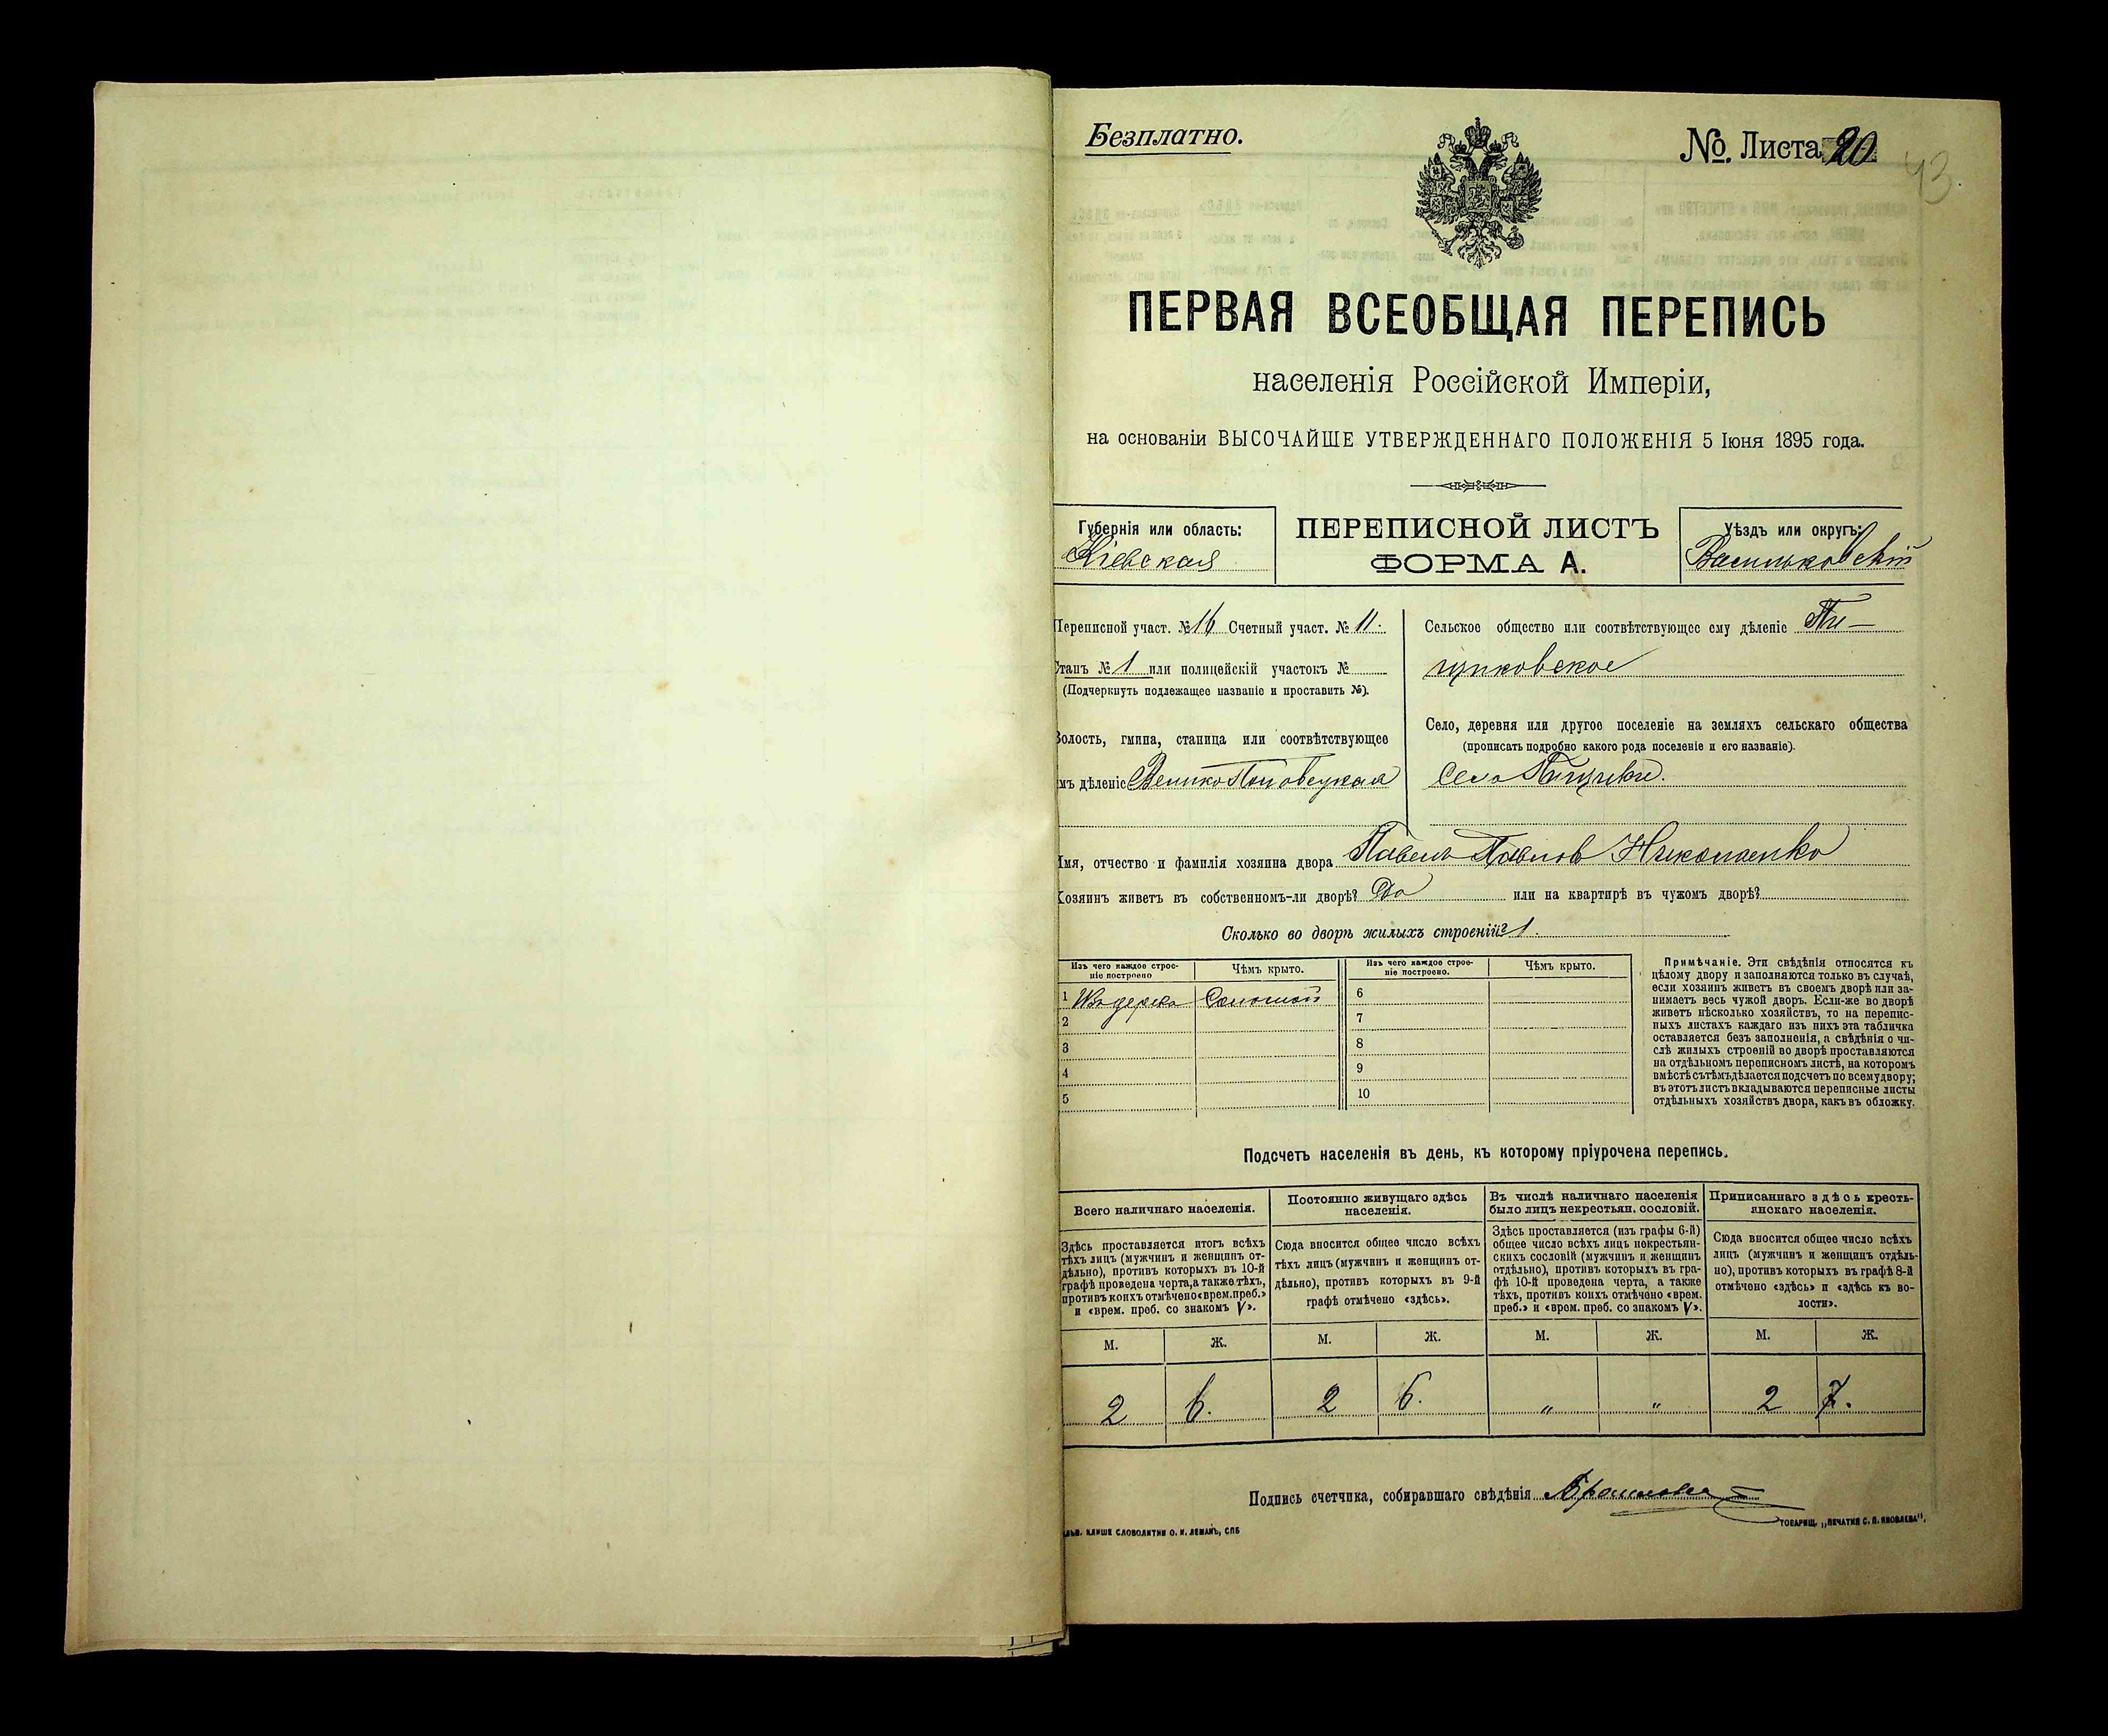 Безплатно.
№. Листа 20
43
ПЕРВАЯ ВСЕОБЩАЯ ПЕРЕПИСЬ
населенія Россійской Имперіи,
на основаніи ВЫСОЧАЙШЕ УТВЕРЖДЕННАГО ПОЛОЖЕНІЯ 5 Іюня 1895 года.
Губернія или область:
Кіевская
ПЕРЕПИСНОЙ ЛИСТЪ
ФОРМА А.
Уѣздъ или округъ:
Васильковскій
Переписной участ. № 16 Счетный участ. № 11.
Станъ № 1 или полицейскій участокъ №
(Подчеркнуть подлежащее названіе и проставить №).
Волость, гмина, станица или соотвѣтствующее
имъ дѣленіе ВеликоПоловецкая
Сельское общество или соотвѣтствующее ему дѣленіе Пи-
щиковское
Село, деревня или другое поселеніе на земляхъ сельскаго общества
(прописать подробно какого рода поселеніе и его названіе).
Село Пищики.
Имя, отчество и фамилія хозяина двора Павелъ Павловъ Николаенко
Хозяинъ живетъ въ собственномъ-ли дворѣ? Да или на квартирѣ въ чужомъ дворѣ?
Сколько во дворѣ жилыхъ строеній? 1.
Изъ чего каждое строе-
ніе построено
Чѣмъ крыто.
Изъ чего каждое строе-
ніе построено.
Чѣмъ крыто.
1 Изъ дерева Соломой
2
3
4
5
6
7
8
9
10
Примѣчаніе. Эти свѣдѣнія относятся къ
цѣлому двору и заполняются только въ случаѣ,
если хозяинъ живетъ въ своемъ дворѣ или за-
нимаетъ весь чужой дворъ. Если-же во дворѣ
живетъ нѣсколько хозяйствъ, то на перепис-
ныхъ листахъ каждаго изъ нихъ эта табличка
оставляется безъ заполненія, а свѣдѣнія о чи-
слѣ жилыхъ строеній во дворѣ проставляются
на отдѣльномъ переписномъ листѣ, на которомъ
вмѣстѣ съ тѣмъ дѣлается подсчетъ по всему двору;
въ этотъ листъ вкладываются переписные листы
отдѣльныхъ хозяйствъ двора, какъ въ обложку.
Подсчетъ населенія въ день, къ которому пріурочена перепись.
Всего наличнаго населенія.
Постоянно живущаго здѣсь
населенія.
Въ числѣ наличнаго населенія
было лицъ некрестьян. сословій.
Приписаннаго здѣсь кресть-
янскаго населенія.
Здѣсь проставляется итогъ всѣхъ
тѣхъ лицъ (мужчинъ и женщинъ от-
дѣльно), противъ которыхъ въ 10-й
графѣ проведена черта, а также тѣхъ,
противъ коихъ отмѣчено «врем. преб.»
и «врем. преб. со знакомъ V».
Сюда вносится общее число всѣхъ
тѣхъ лицъ (мужчинъ и женщинъ от-
дѣльно), противъ которыхъ въ 9-й
графѣ отмѣчено «здѣсь».
Здѣсь проставляется (изъ графы 6-й)
общее число всѣхъ лицъ некрестьян-
скихъ сословій (мужчинъ и женщинъ
отдѣльно), противъ которыхъ въ гра-
фѣ 10-й проведена черта, а также
тѣхъ, противъ коихъ отмѣчено «врем.
преб.» и «врем. преб. со знакомъ V».
Сюда вносится общее число всѣхъ
лицъ (мужчинъ и женщинъ отдѣль-
но), противъ которыхъ въ графѣ 8-й
отмѣчено «здѣсь» и «здѣсь къ во-
лости».
М. Ж. М. Ж. М. Ж. М. Ж.
2 6. 2 6. " " 2 7.
Подпись счетчика, собиравшаго свѣдѣнія
КЛИШЕ СЛОВОЛИТНИ О. И. ЛЕМАНЪ, СПБ
ТОВАРИЩ. „ПЕЧАТНЯ С. П. ЯКОВЛЕВА".